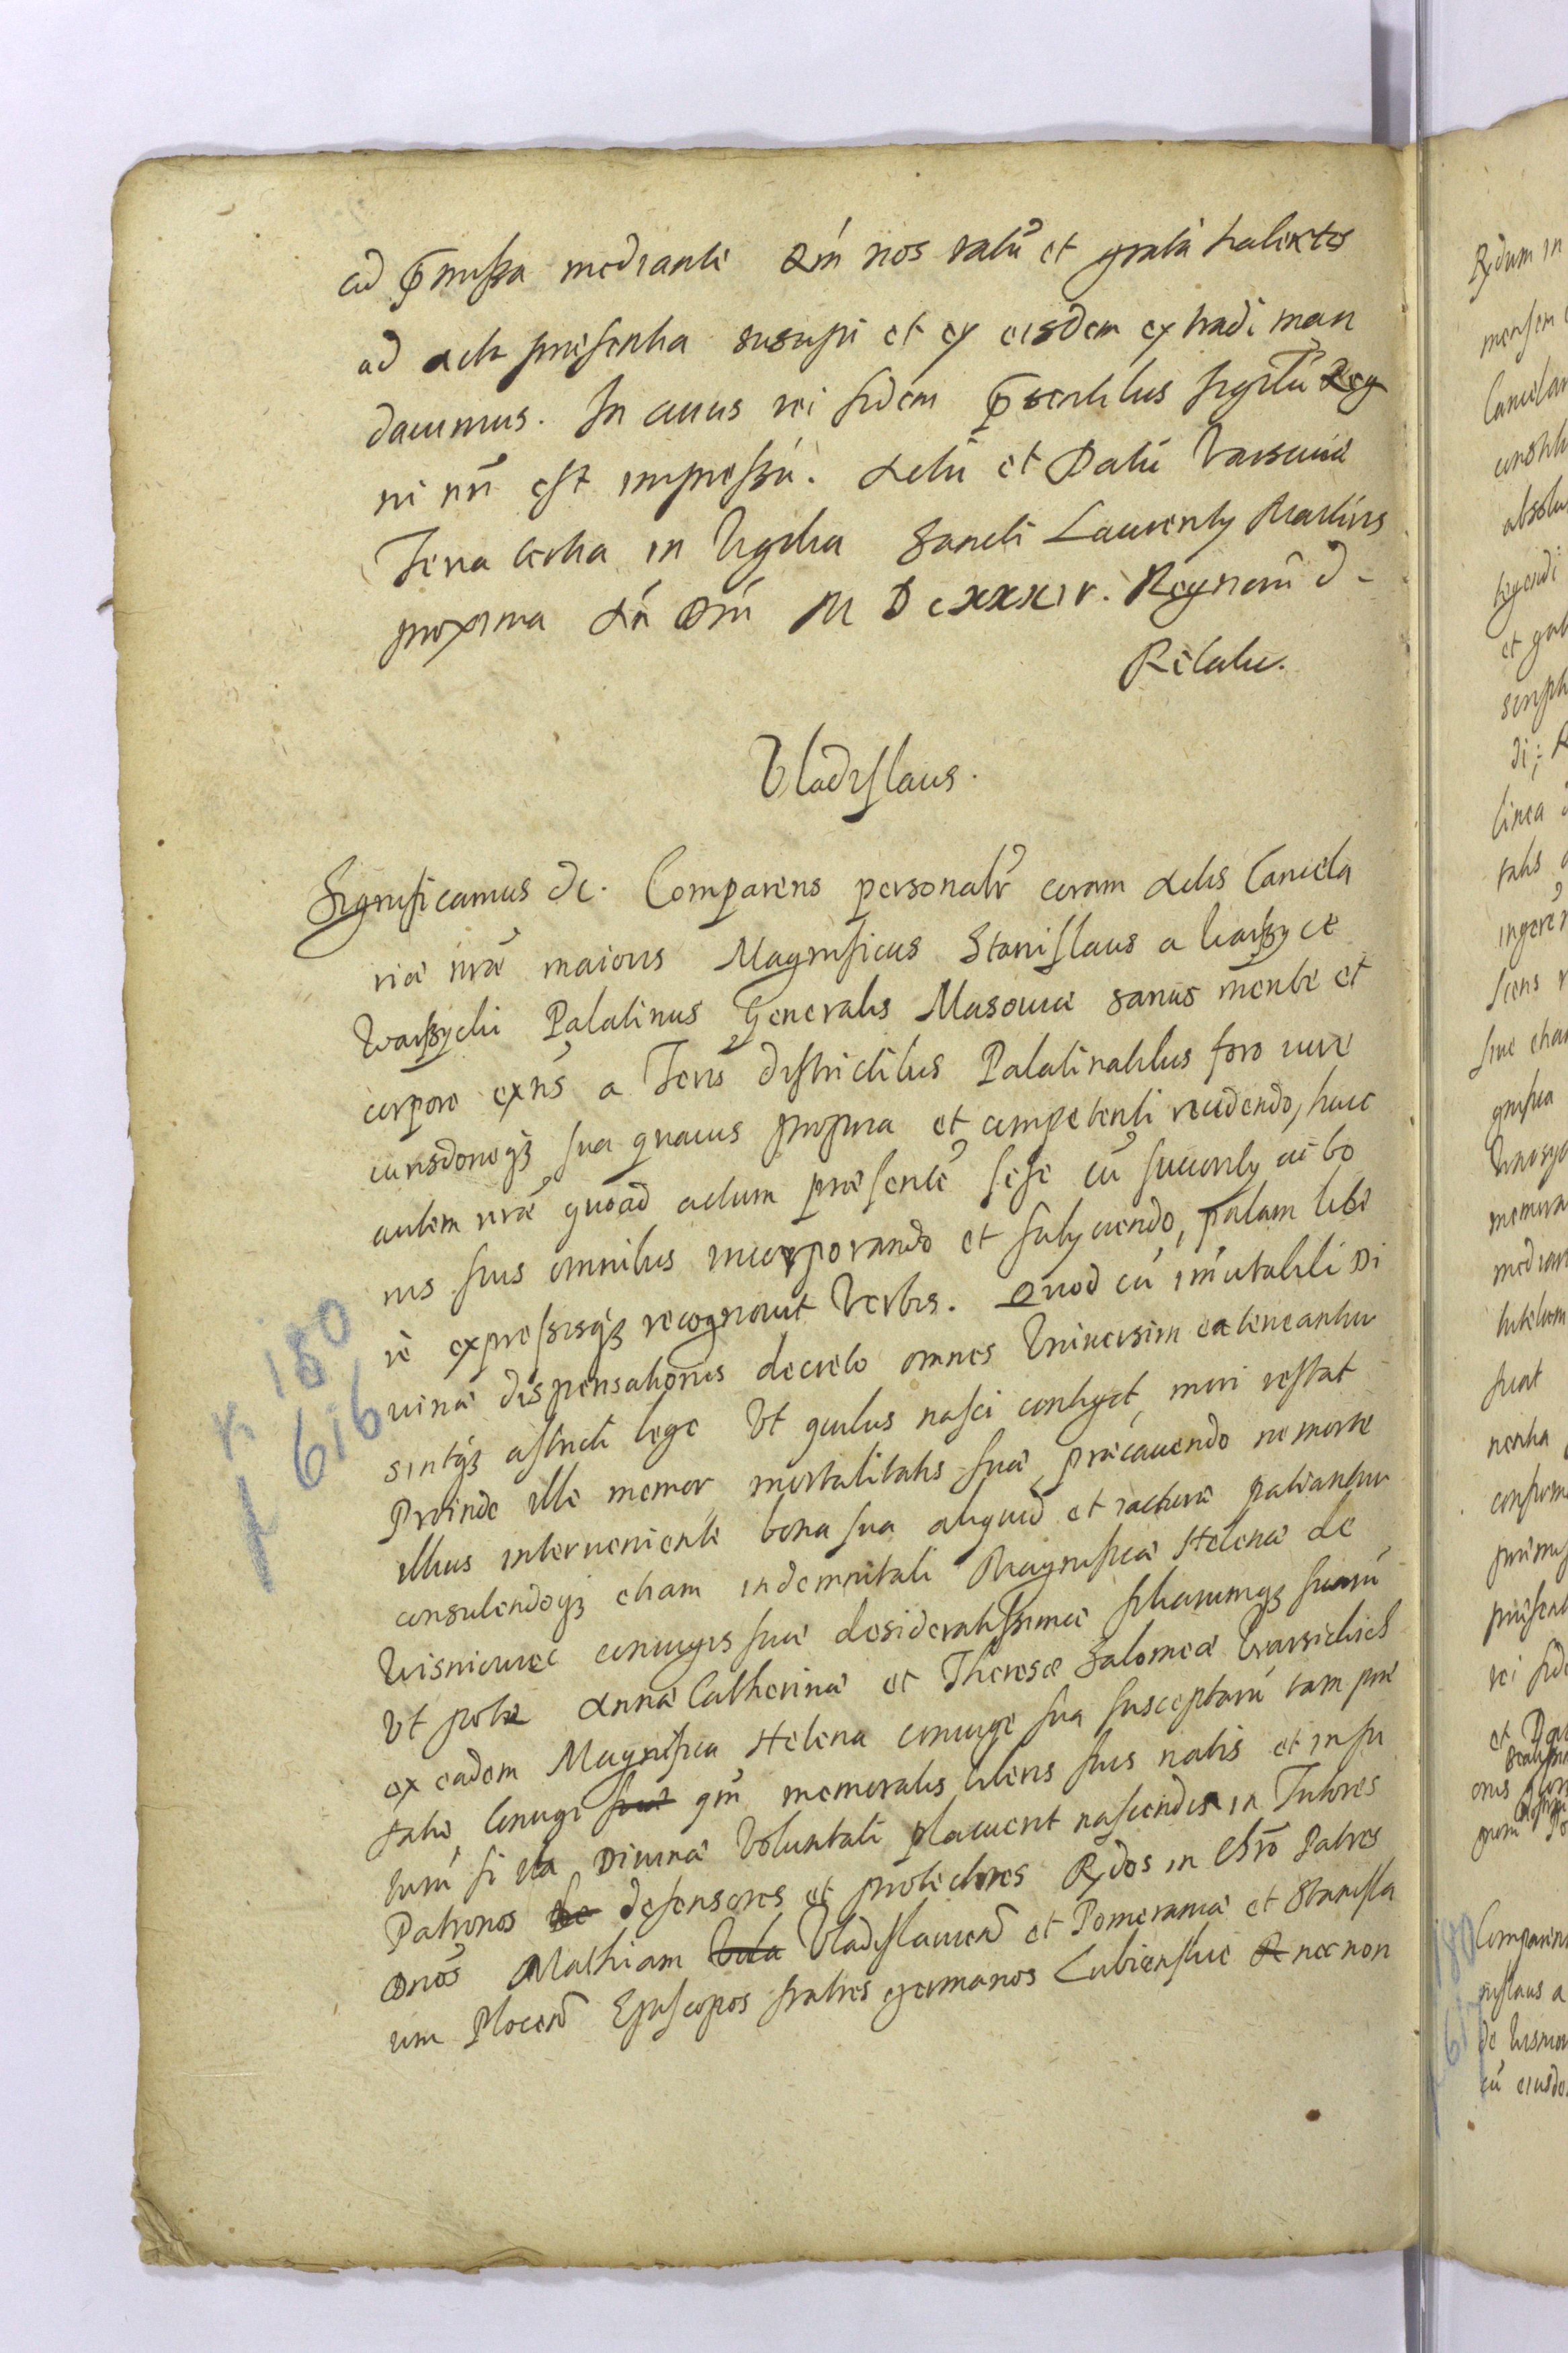 ad p̄missa mediante Qm̄ nos ratū et gratū habentes
ad acta præsentia suscipi et ex eisdem extradi man
dauimus. In cuius rei fidem p̄sentibus sigillū Reg
ni nr̄i est impressū. Actū et Datū Varsauiæ
Feria tertia in Vigilia Sancti Laurentij Martiris
proxima An̄ Dn̄i M D CXXXIV. Regnorū d-
Relatu.
Vladislaus.
Significamus &c. Comparens personalr̄ coram Actis Cancela
riæ nr̄æ maioris Magnificus Stanislaus a Warszyce
Warszycki Palatinus Generalis Masouiæ sanus mente et
corpore exn̄s a Terris districtibus Palatinatibus foro iure
iurisdoneq3 sua quauis propria et competenti recedendo, huic
autem nr̄æ quoad actum præsentē sese cū successorib9 ac bo
nis suis omnibus incorporando et subijciendo, palam libe
rè expressisq3 recognouit Verbis. Quod cū im̄utabili Di
uinæ dispensationis decreto omnes Vniuersim ea teneantur
sintq3 astricti lege Vt quibus nasci contigit, mori restat
Proinde ille memor mortalitatis suæ, præcauendo ne morte
illius interueniente bona sua aliquid et iacturæ patiantur
consulendoq3 etiam indemnitati Magnificæ Helenæ de
Wisniowiec coniugis suæ desideratissimæ filiarumq3 suarū
Vt pote Annæ Catherinæ et Theresæ Salomeæ Warsickich
ex eadem Magnifica Helena coniuge sua susceptarū tam præ
fatæ Coniugi suæ qm̄ memoratis liberis suis natis et in fu
turū si ita Diuinæ Voluntati placuerit nascendis in Tutores
Patronos de defensores et protectores Rn̄dos in Chrō Patres
Dnōs Mathiam Vla Vladislauien̄ et Pomeraniæ et Stanisla
um Plocen̄ Episcopos fratres germanos Lubienskie & necnon
k 180
f 616